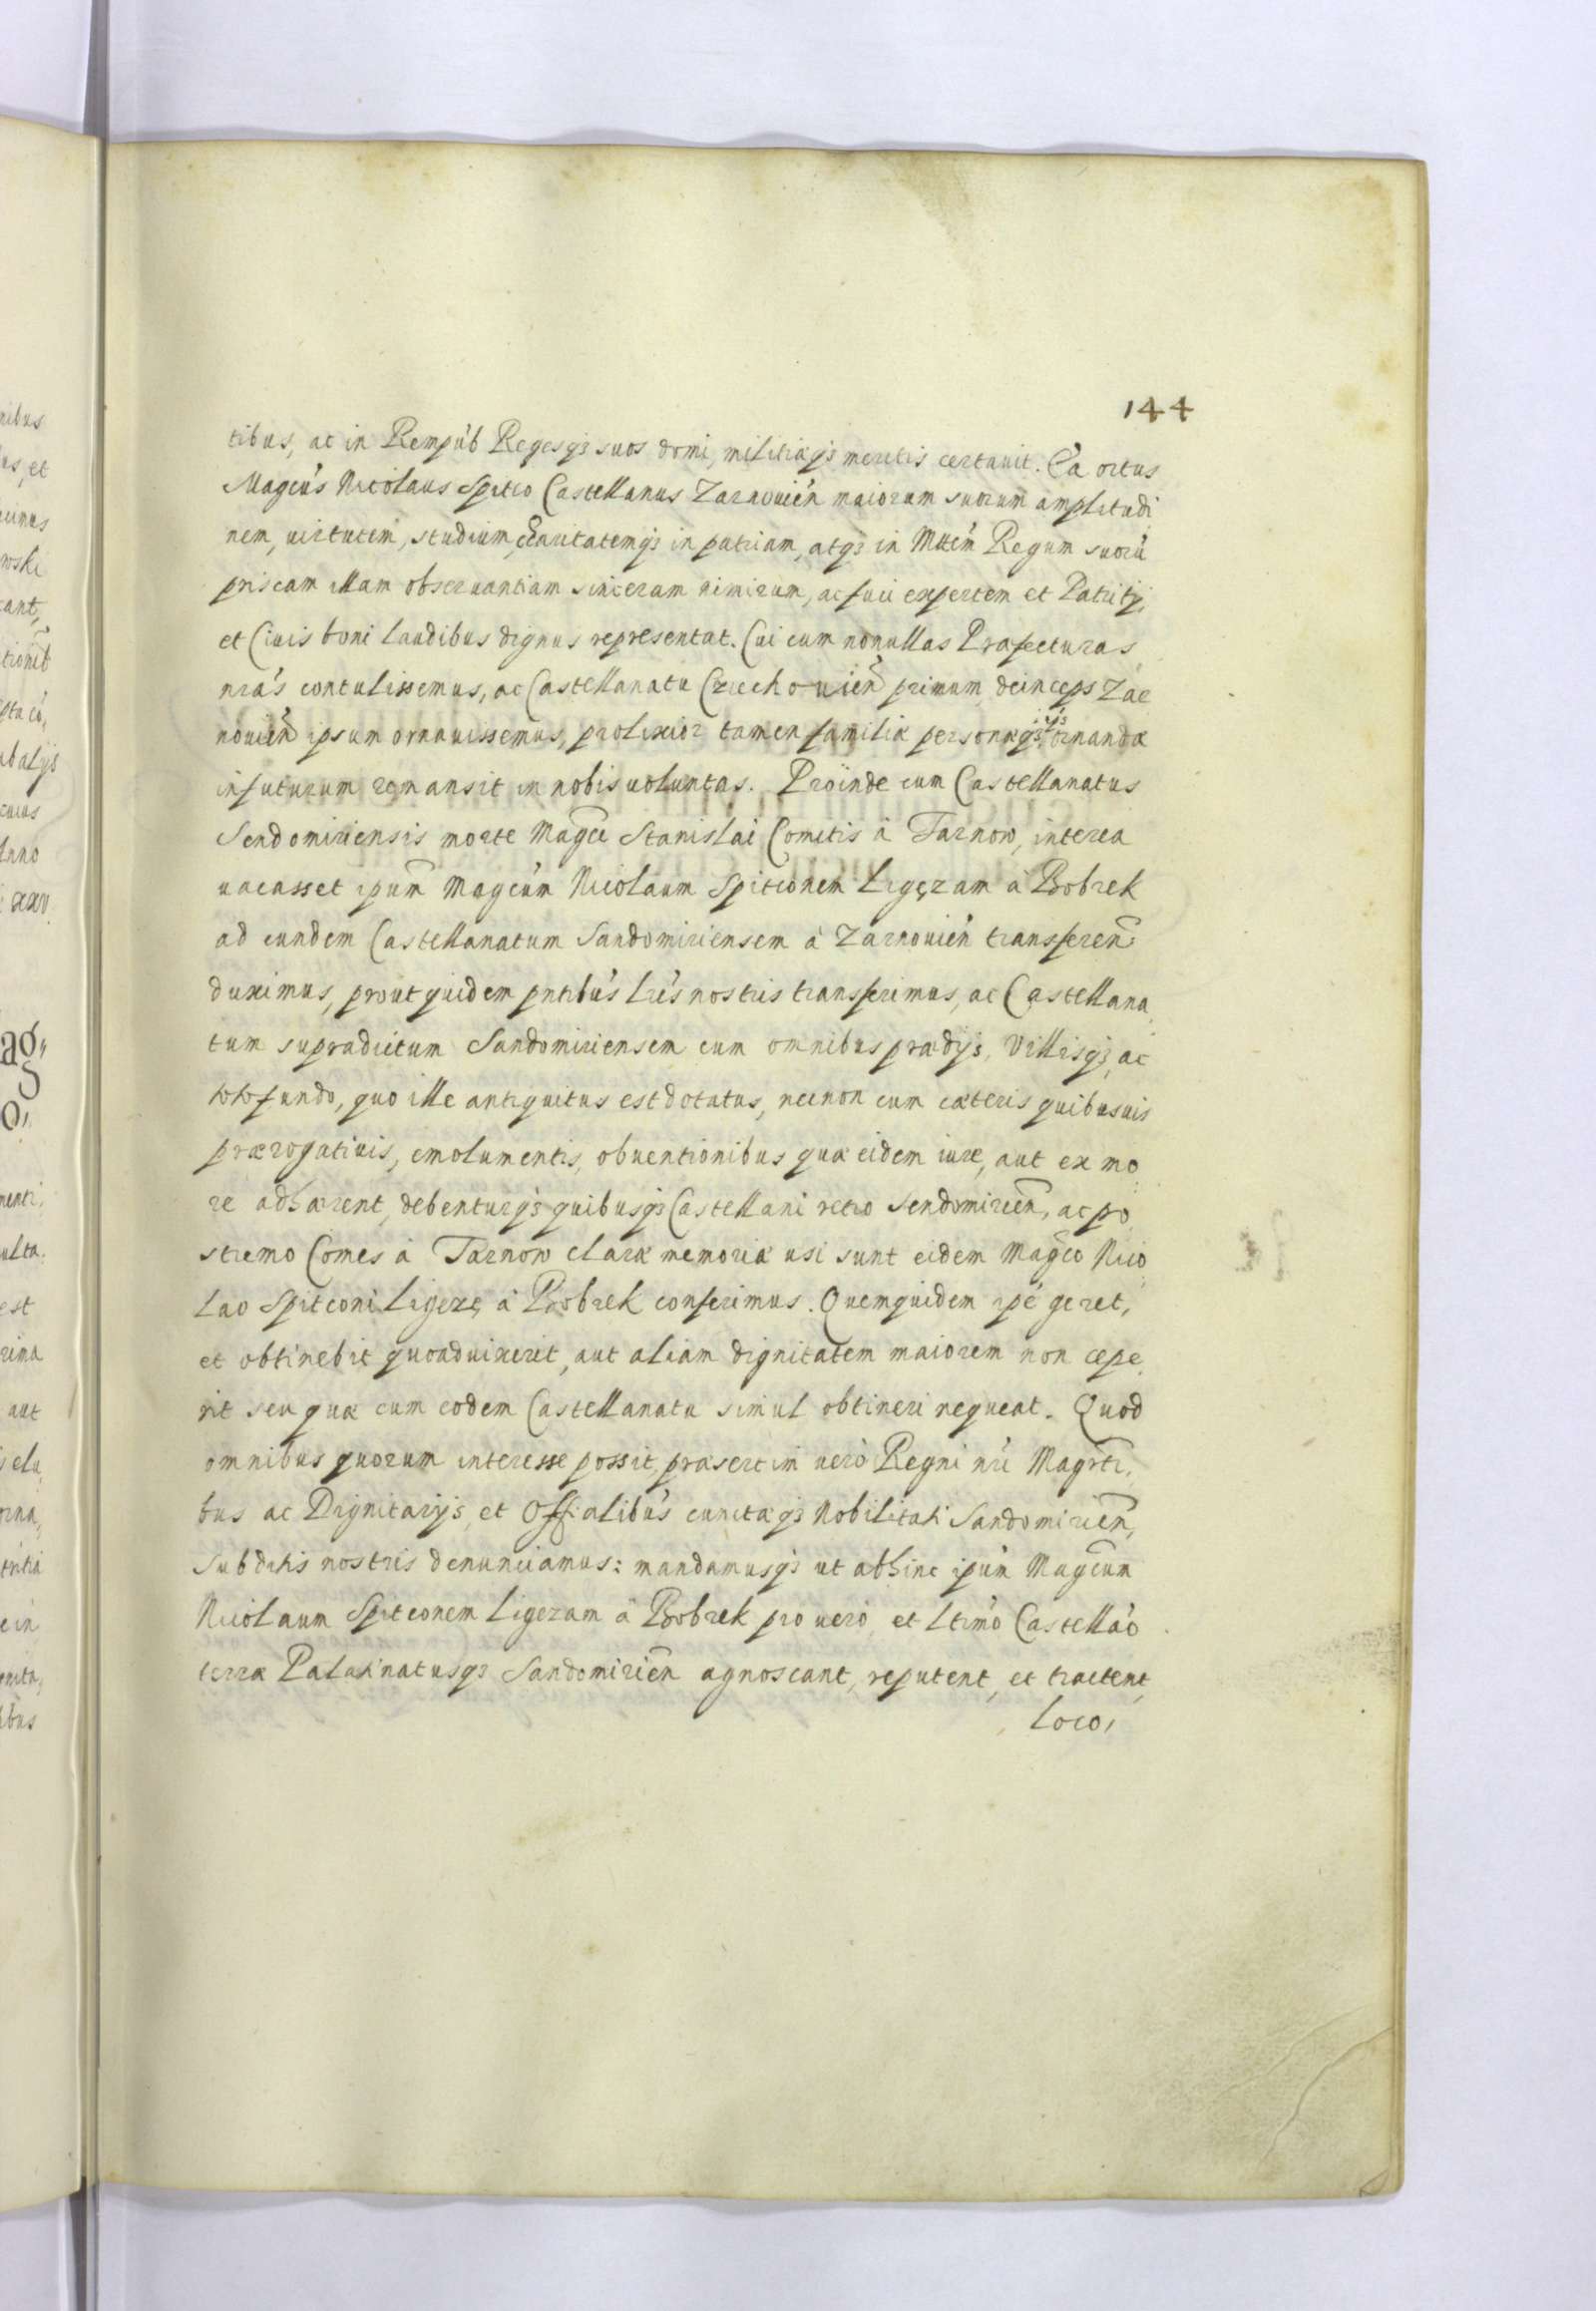 144
tibus, ac in Rempúb Regesq́ꝫ suos domi, militiæq́ꝫ meritis certauit. Ea ortus
Magcu͛s Nicolaus Spitco Castellanus Zarnouień maiorum suorum amplitudi
nem, uirtutem, studium, charitatemq́ꝫ in patriam, atqꝫ in Mttem̃ Regum suorũ
priscam illam obseruantiam sinceram nimirum, ac fuci expertem et Patritij,
et Ciuis boni laudibus dignus representat. Cui cum nonullas Præfecturas
nrãs contulissemus, ac Castellanatu Czechouień primum, deinceps Zar
nouień ipsum ornauissemus, prolixior tamen familiæ personæqꝫ ei͛s ornandæ
in futurum remansit in nobis uoluntas. Proinde cum Castellanatus
Sendomiriensis morte Magc̃i Stanislai Comitis à Tarnow, interea
uacasset ipum̃ Magcum̃ Nicolaum Spitconem Ligęzam à Bobrek
ad eundem Castellanatum Sandomiriensem à Zarnouień transferen:
duximus, prout quidem pntibu͛s lri͛s nostris transferimus, ac Castellana
tum supradictum Sandomiriensem cum omnibus prædijs, Villisq́ꝫ, ac
toto fundo, quo ille antiquitus est dotatus, necnon cum cæteris quibusuis
prærogatiuis, emolumentis, obuentionibus quæ eidem iure, aut ex mo
re adhærent, debenturq́ꝫ quibusq́ꝫ Castellani retro Sendomirień, ac po
stremo Comes à Tarnow claræ memoriæ usi sunt eidem Magc̃o Nico
lao Spitconi Ligezę à Bobrek conferimus. Quemquidem ipe͛ geret,
et obtinebit quoad uixerit, aut aliam dignitatem maiorem non cepe
rit seu quæ cum eodem Castellanatu simul obtineri nequeat. Quod
omnibus quorum interesse possit, præsertim uerò Regni nri͛ Magrti͛
bus ac Dignitarijs, et Offialibu͛s cunctæq́ꝫ Nobilitati Sandomirień,
subditis nostris denunciamus: mandamusq́ꝫ ut abhinc ipum̃ Magcum̃
Nicolaum Spitconem Ligezam à Bobrek pro uero, et ltimõ Castellãó
terræ Palatinatusqꝫ Sandomirień agnoscant, reputent, et tractent,
loco,